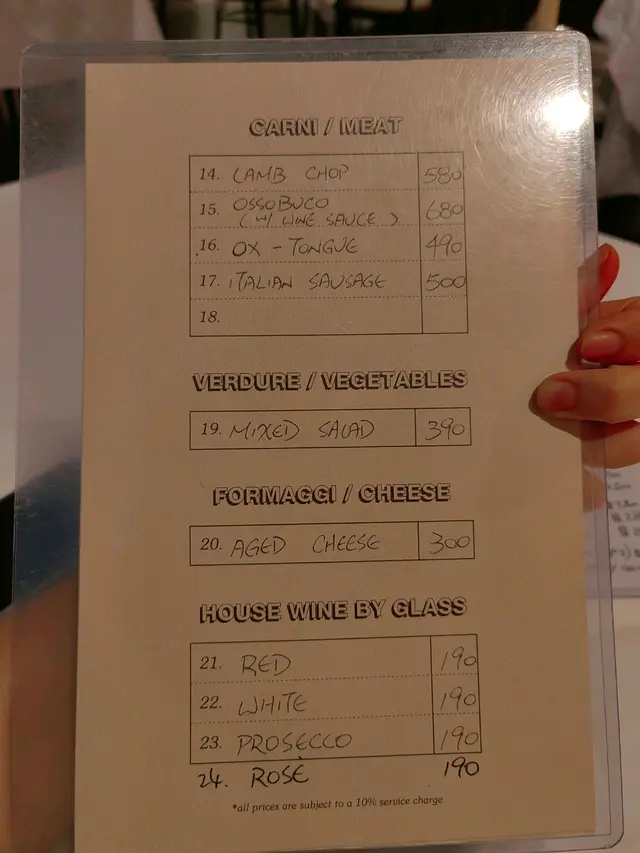 CARNI / MEAT
14. LAMB CHOP 580
15. OSSOBUCO
( W/ WINE SAUCE ) 680
16. OX - TONGUE 490
17. ITALIAN SAUSAGE 500
18.
VERDURE / VEGETABLES
19. MIXED SALAD 390
FORMAGGI / CHEESE
20. AGED CHEESE 300
HOUSE WINE BY GLASS
21. RED 190
22. WHITE 190
23. PROSECCO 190
24. ROSÈ 190
*all prices are subject to a 10% service charge